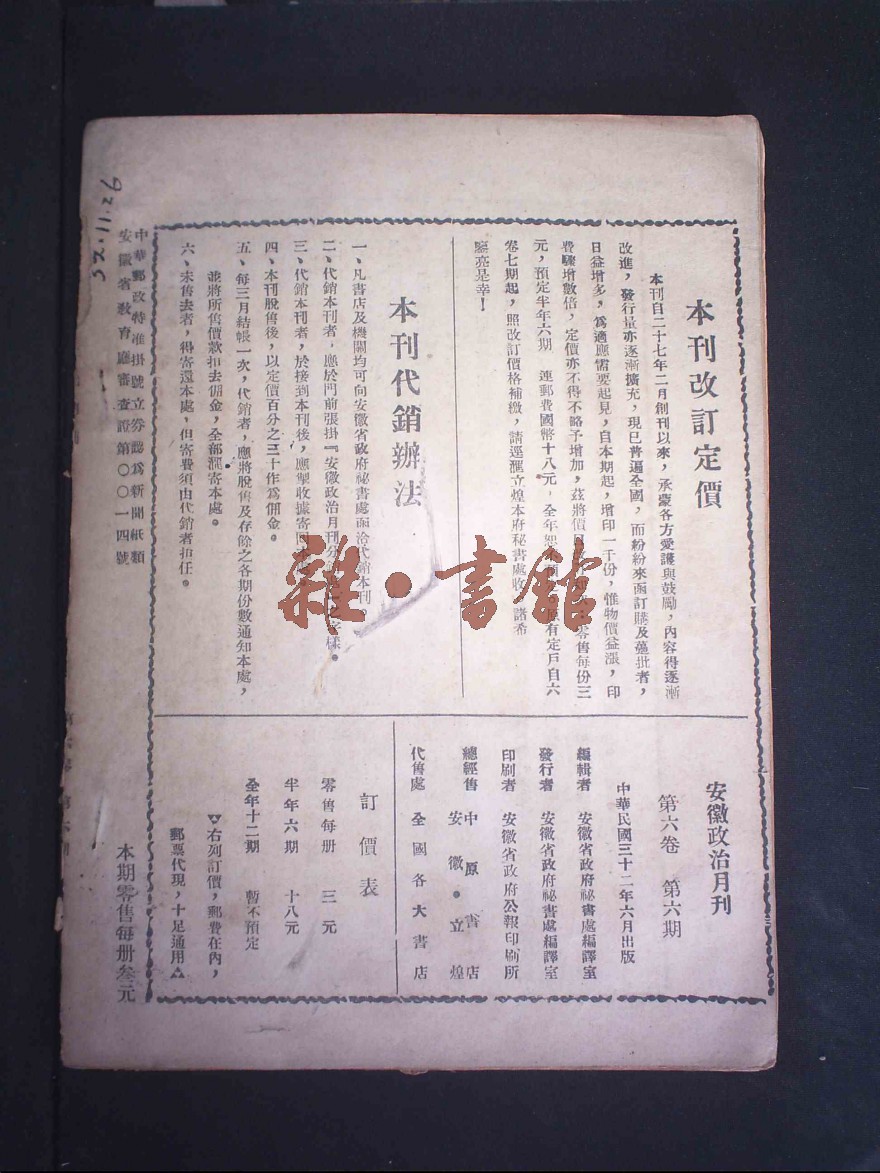 本刊改訂定價
本刊自二十七年二月創刊以來，承蒙各方愛護與鼓勵，內容得逐漸
改進，發行量亦逐漸擴充，現已普遍全國，而紛紛來函訂購及躉批者，
日益增多，爲適應需要起見，自本期起，增印一千份，惟物價益漲，印
費驟增數倍，定價亦不得不略予增加，茲將價目 零售每份三
元，預定半年六期 連郵費國幣十八元，全年恕不 原有定戶自六
卷七期起，照改訂價格補繳，請逕滙立煌本府秘書處收 諸希
鑒亮是幸！
本刊代銷辦法
一、凡書店及機關均可向安徽省政府祕書處函洽代銷本刊。
二、代銷本刊者，應於門前張掛『安徽政治月刊分 字樣。
三、代銷本刊者，於接到本刊後，應掣收據寄回本
四、本刊脫售後，以定價百分之三十作爲佣金。
五、每三月結帳一次，代銷者，應將脫售及存餘之各期份數通知本處，
並將所售價款扣去佣金，全部滙寄本處。
六、未售去者，得寄還本處，但寄費須由代銷者担任。
安徽政治月刊
第六卷 第六期
中華民國三十二年六月出版
編輯者 安徽省政府祕書處編譯室
發行者 安徽省政府祕書處編譯室
印刷者 安徽省政府公報印刷所
總經售 中原書店
安徽·立煌
代售處 全國各大書店
訂價表
零售每册 三元
半年六期 十八元
全年十二期 暫不預定
▽右列訂價，郵費在內，
郵票代現，十足通用△
中華郵政特准掛號立券認爲新聞紙類
安徽省教育廳審查證第〇〇一四號
本期零售每册叁元
32.11.26
雜·書館